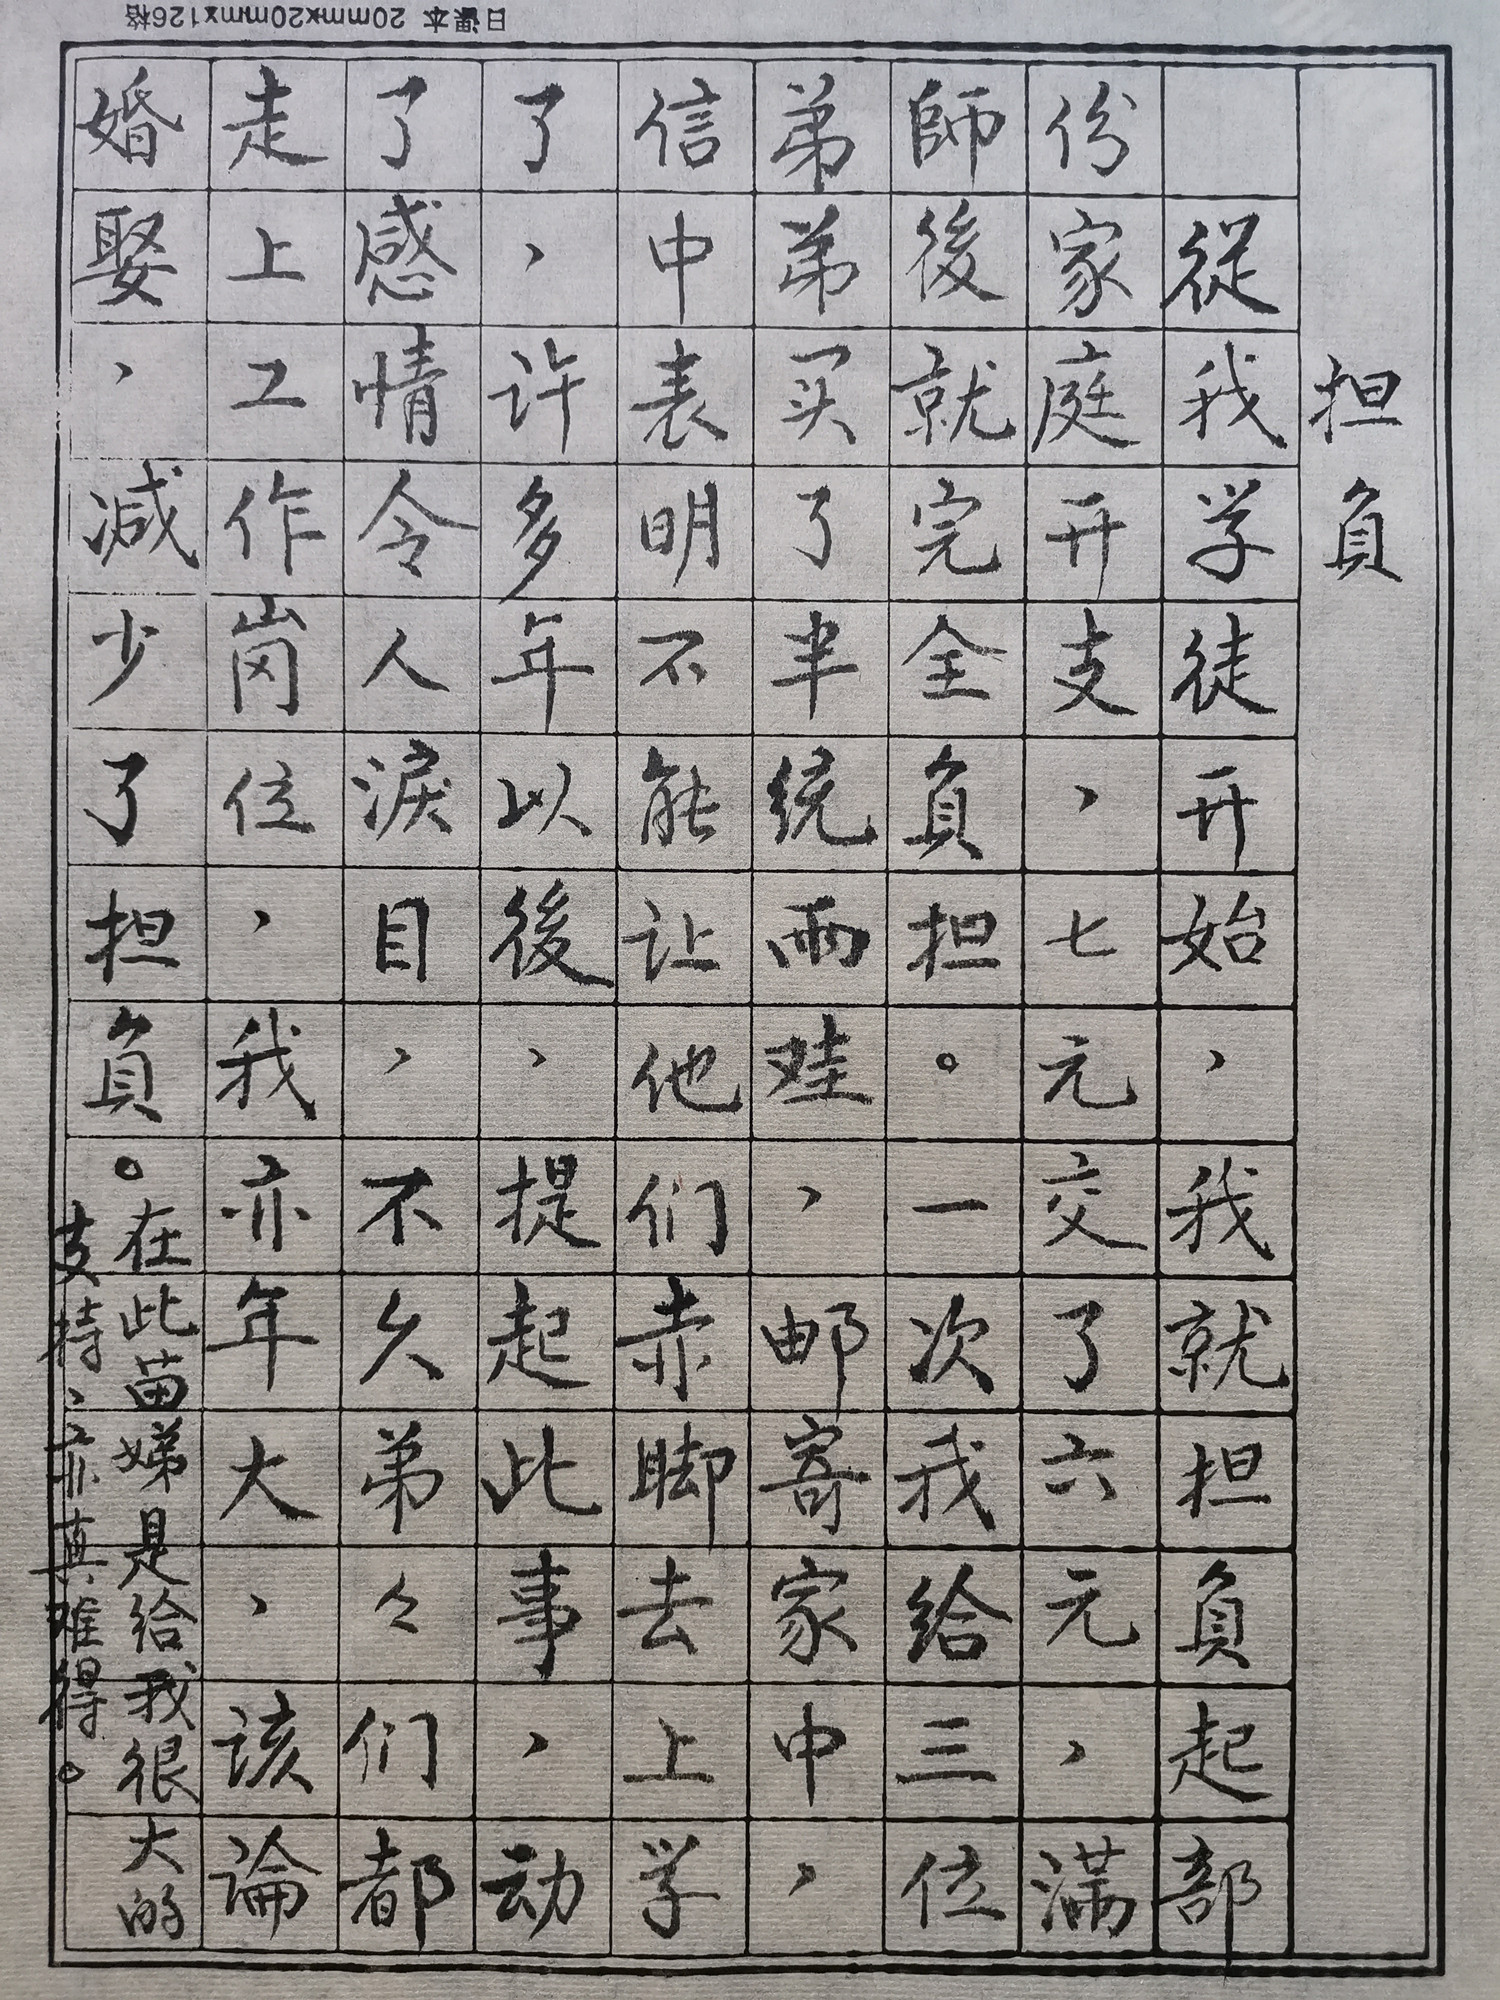 日课本 20mmx20mmx126格
担负
從我学徒开始，我就担負起部
份家庭开支，七元交了六元，满
師後就完全負担。一次我给三位
弟弟买了半统雨鞋，邮寄家中，
信中表明不能让他们赤脚去上学
了，许多年以後，提起此事，动
了感情令人淚目，不久弟々们都
走上工作岗位，我亦年大，该論
婚娶，减少了担負。在此苗娣是给我很大的
支持，亦真难得。